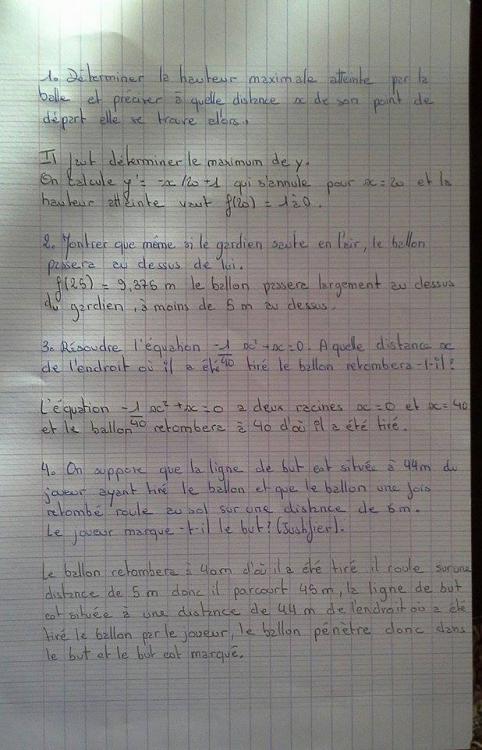 1. Déterminer la hauteur maximale atteinte par la
balle et préciser à quelle distance x de son point de
départ elle se trouve alors.
Il faut déterminer le maximum de y.
On calcule y' = -x/20 +1 qui s'annule pour x=20 et la
hauteur atteinte vaut f(20) = 10.
2. Montrer que même si le gardien saute en l'air, le ballon
passera au dessus de lui.
f(25) = 9,375 m le ballon passera largement au dessus
du gardien, à moins de 5 m au dessus.
3. Résoudre l'équation -1/40 x² + x = 0. A quelle distance x
de l'endroit où il a été tiré le ballon retombera-t-il?
L'équation -1/40 x² + x = 0 a deux racines x=0 et x=40
et le ballon retombera à 40 d'où il a été tiré.
4. On suppose que la ligne de but est située à 44m du
joueur ayant tiré le ballon et que le ballon une fois
retombé roule au sol sur une distance de 5m.
Le joueur marque-t-il le but? (Justifier).
Le ballon retombera à 40m d'où il a été tiré il roule sur une
distance de 5 m donc il parcourt 45 m, la ligne de but
est située à une distance de 44 m de l'endroit ou a été
tiré le ballon par le joueur, le ballon pénètre donc dans
le but et le but est marqué.